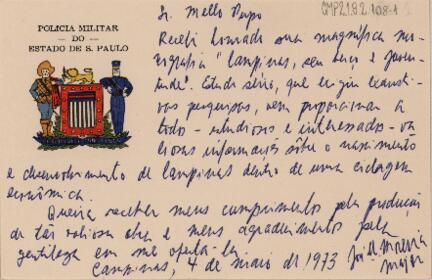 CMP2.1.9.2.108-1
POLICIA MILITAR
DO
ESTADO DE S. PAULO
Sr. Mello Pupo
Recebi honrado sua magnífica mo-
nografia "Campinas, seu berço e juven-
tude". Estudo sério, que exigiu exausti-
vas pesquisas, vem proporcionar a
todo - estudiosos e interessados - va-
liosas informações sôbre o nascimento
e desenvolvimento de Campinas dentro de uma ciclagem
econômica.
Queira receber meus cumprimentos pela produção
de tão valiosa obra e meus agradecimentos pela
gentileza em me ofertá-la
Campinas, 4 de maio de 1973
Major